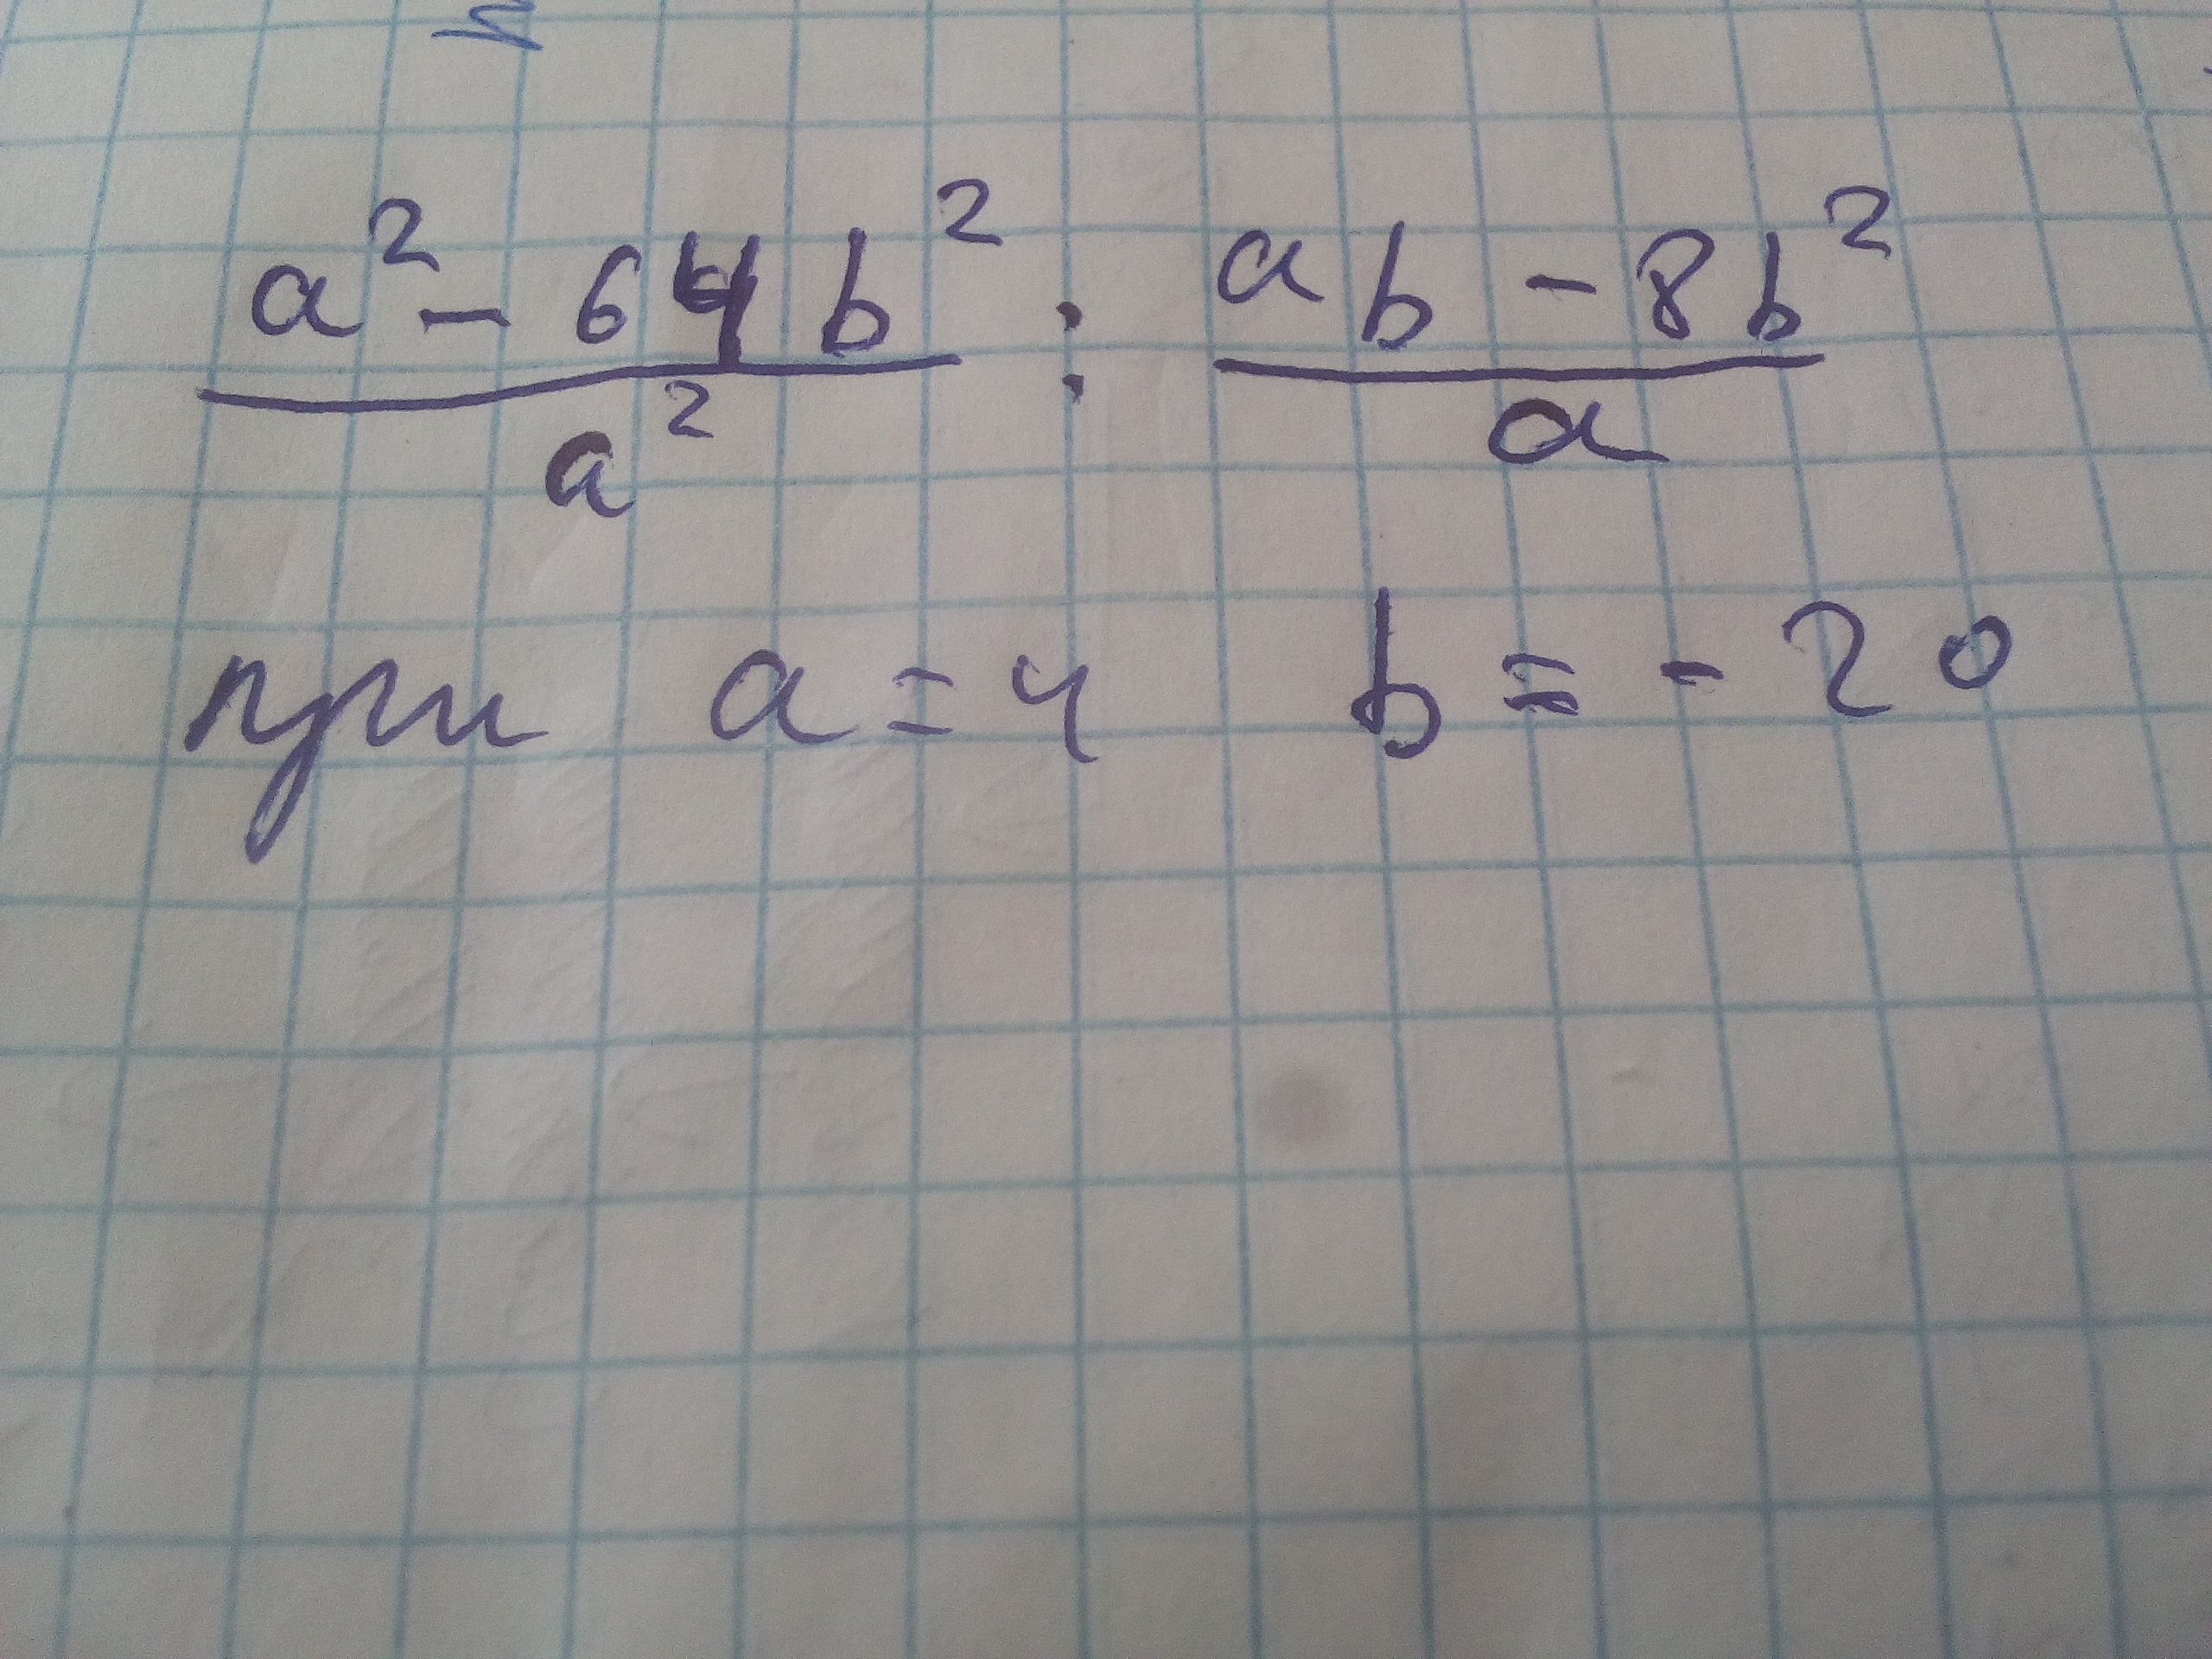 a² - 64b² : ab - 8b²
a² a
при a = 4 b = - 20